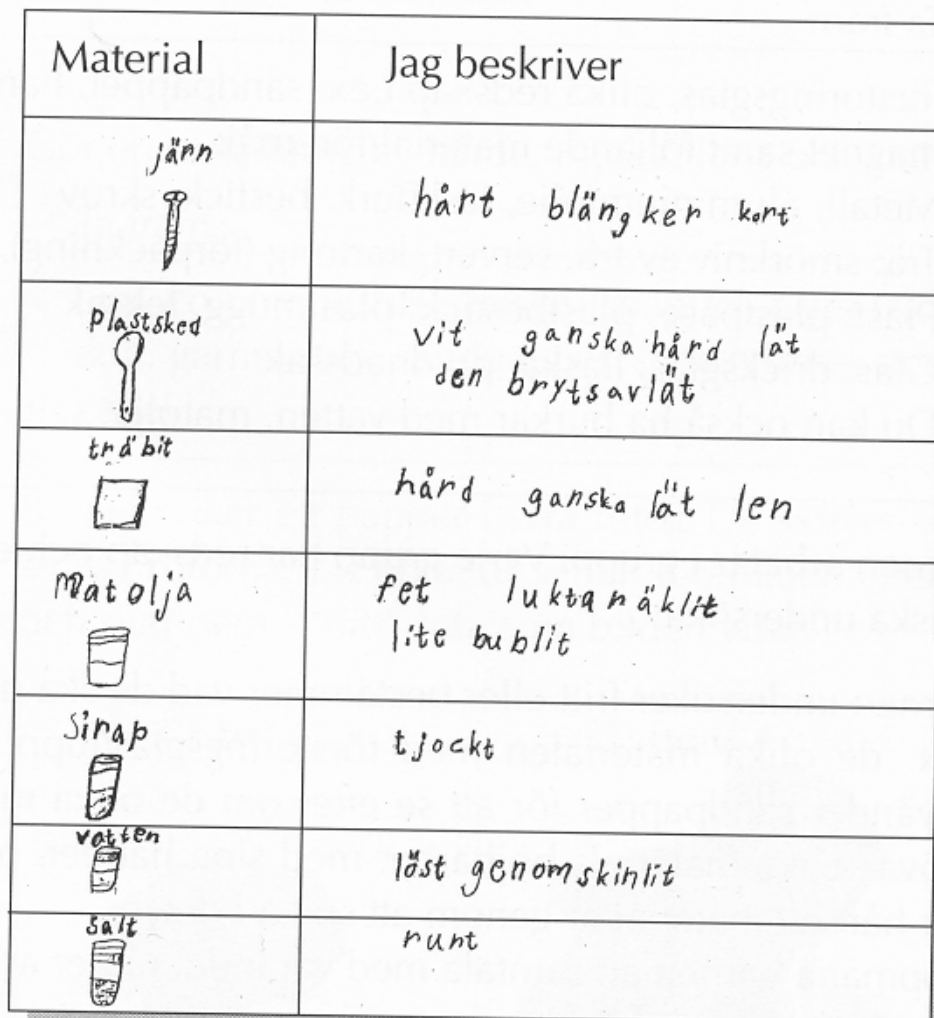 Material
Jag beskriver
järn
hårt blängker kort
plastsked
vit ganska hård lät
den brytsavlät
träbit
hård ganska lät len
Matolja
fet luktar äklit
lite bublit
Sirap
tjockt
vatten
löst genomskinlit
salt
runt